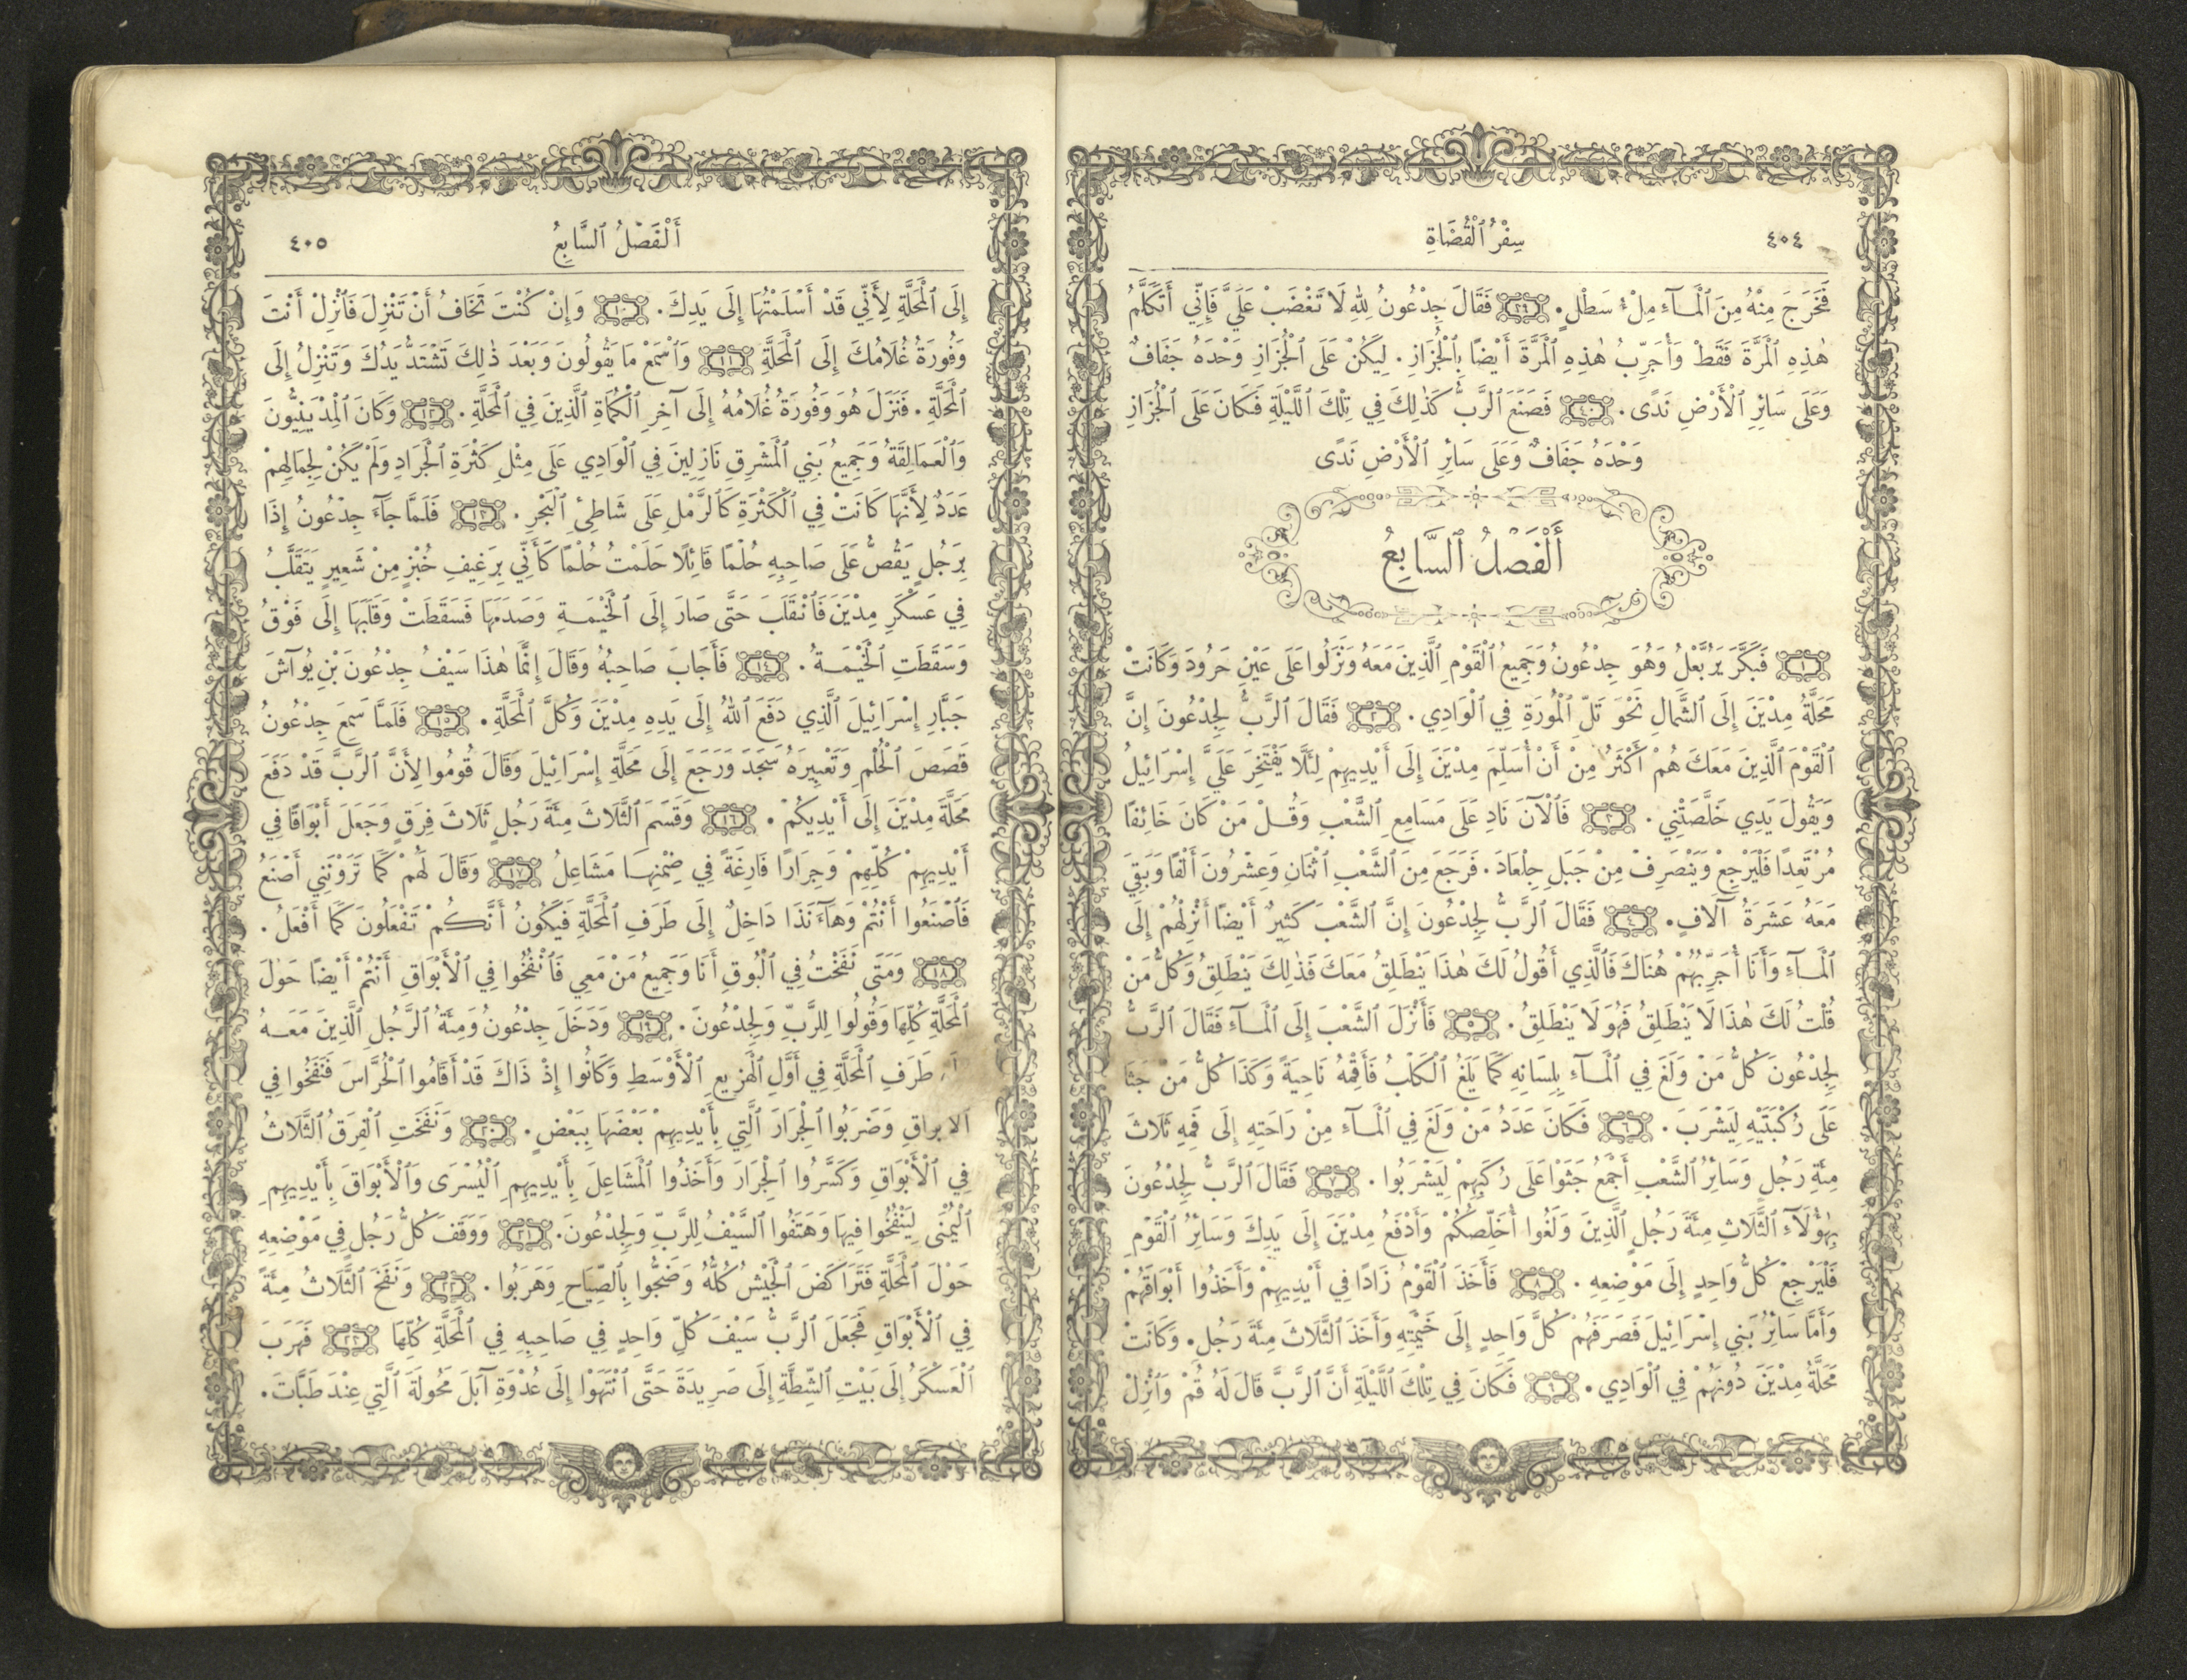 ٤٠٤
سِفْرُ ٱلْقُضَاةِ
فَخَرَجَ مِنْهُ مِنَ ٱلْمَآءِ مِلْءُ سَطْلٍ. ٣٩ فَقَالَ جِدْعُونُ لِلهِ لَا تَغْضَبْ عَلَيَّ فَإِنِّي أَتَكَلَّمُ
هٰذِهِ ٱلْمَرَّةَ فَقَطْ وَأُجَرِّبُ هٰذِهِ ٱلْمَرَّةَ أَيْضًا بِٱلْجُزَازِ. لِيَكُنْ عَلَى ٱلْجُزَازِ وَحْدَهُ جَفَافٌ
وَعَلَى سَائِرِ ٱلْأَرْضِ نَدًى. ٤٠ فَصَنَعَ ٱلرَّبُّ كَذٰلِكَ فِي تِلْكَ ٱللَّيْلَةِ فَكَانَ عَلَى ٱلْجُزَازِ
وَحْدَهُ جَفَافٌ وَعَلَى سَائِرِ ٱلْأَرْضِ نَدًى
أَلْفَصْلُ ٱلسَّابِعُ
١ فَبَكَّرَ يَرُبَّعْلُ وَهُوَ جِدْعُونُ وَجَمِيعُ ٱلْقَوْمِ ٱلَّذِينَ مَعَهُ وَنَزَلُوا عَلَى عَيْنِ حَرُودَ وَكَانَتْ
مَحَلَّةُ مِدْيَنَ إِلَى ٱلشَّمَالِ نَحْوَ تَلِّ ٱلْمُورَةِ فِي ٱلْوَادِي. ٢ فَقَالَ ٱلرَّبُّ لِجِدْعُونَ إِنَّ
ٱلْقَوْمَ ٱلَّذِينَ مَعَكَ هُمْ أَكْثَرُ مِنْ أَنْ أُسَلِّمَ مِدْيَنَ إِلَى أَيْدِيهِمْ لِئَلَّا يَفْتَخِرَ عَلَيَّ إِسْرَائِيلُ
وَيَقُولَ يَدِي خَلَّصَتْنِي. ٣ فَٱلْآنَ نَادِ عَلَى مَسَامِعِ ٱلشَّعْبِ وَقُلْ مَنْ كَانَ خَائِفًا
مُرْتَعِدًا فَلْيَرْجِعْ وَيَنْصَرِفْ مِنْ جَبَلِ جِلْعَادَ. فَرَجَعَ مِنَ ٱلشَّعْبِ ٱثْنَانِ وَعِشْرُونَ أَلْفًا وَبَقِيَ
مَعَهُ عَشَرَةُ آلَافٍ. ٤ فَقَالَ ٱلرَّبُّ لِجِدْعُونَ إِنَّ ٱلشَّعْبَ كَثِيرٌ أَيْضًا أَنْزِلْهُمْ إِلَى
ٱلْمَآءِ وَأَنَا أُجَرِّبُهُمْ هُنَاكَ فَٱلَّذِي أَقُولُ لَكَ هٰذَا يَنْطَلِقُ مَعَكَ فَذٰلِكَ يَنْطَلِقُ وَكُلُّ مَنْ
قُلْتُ لَكَ هٰذَا لَا يَنْطَلِقُ فَهُوَ لَا يَنْطَلِقُ. ٥ فَأَنْزَلَ ٱلشَّعْبَ إِلَى ٱلْمَآءِ فَقَالَ ٱلرَّبُّ
لِجِدْعُونَ كُلُّ مَنْ وَلَغَ فِي ٱلْمَآءِ بِلِسَانِهِ كَمَا يَلَغُ ٱلْكَلْبُ فَأَقِمْهُ نَاحِيَةً وَكَذَا كُلُّ مَنْ جَثَا
عَلَى رُكْبَتَيْهِ لِيَشْرَبَ. ٦ فَكَانَ عَدَدُ مَنْ وَلَغَ فِي ٱلْمَآءِ مِنْ رَاحَتِهِ إِلَى فَمِهِ ثَلَاثَ
مِئَةِ رَجُلٍ وَسَائِرُ ٱلشَّعْبِ أَجْمَعُ جَثَوْا عَلَى رُكَبِهِمْ لِيَشْرَبُوا. ٧ فَقَالَ ٱلرَّبُّ لِجِدْعُونَ
بِهٰؤُلَآءِ ٱلثَّلَاثِ مِئَةِ رَجُلٍ ٱلَّذِينَ وَلَغُوا أُخَلِّصُكُمْ وَأَدْفَعُ مِدْيَنَ إِلَى يَدِكَ وَسَائِرُ ٱلْقَوْمِ
فَلْيَرْجِعْ كُلُّ وَاحِدٍ إِلَى مَوْضِعِهِ. ٨ فَأَخَذَ ٱلْقَوْمُ زَادًا فِي أَيْدِيهِمْ وَأَخَذُوا أَبْوَاقَهُمْ
وَأَمَّا سَائِرُ بَنِي إِسْرَائِيلَ فَصَرَفَهُمْ كُلَّ وَاحِدٍ إِلَى خَيْمَتِهِ وَأَخَذَ ٱلثَّلَاثَ مِئَةَ رَجُلٍ. وَكَانَتْ
مَحَلَّةُ مِدْيَنَ دُونَهُمْ فِي ٱلْوَادِي. ٩ فَكَانَ فِي تِلْكَ ٱللَّيْلَةِ أَنَّ ٱلرَّبَّ قَالَ لَهُ قُمْ وَٱنْزِلْ
أَلْفَصْلُ ٱلسَّابِعُ
٤٠٥
إِلَى ٱلْمَحَلَّةِ لِأَنِّي قَدْ أَسْلَمْتُهَا إِلَى يَدِكَ. ١٠ وَإِنْ كُنْتَ تَخَافُ أَنْ تَنْزِلَ فَٱنْزِلْ أَنْتَ
وَفُورَةُ غُلَامُكَ إِلَى ٱلْمَحَلَّةِ ١١ وَٱسْمَعْ مَا يَقُولُونَ وَبَعْدَ ذٰلِكَ تَشْتَدُّ يَدُكَ وَتَنْزِلُ إِلَى
ٱلْمَحَلَّةِ. فَنَزَلَ هُوَ وَفُورَةُ غُلَامُهُ إِلَى آخِرِ ٱلْكُمَاةِ ٱلَّذِينَ فِي ٱلْمَحَلَّةِ. ١٢ وَكَانَ ٱلْمِدْيَنِيُّونَ
وَٱلْعَمَالِقَةُ وَجَمِيعُ بَنِي ٱلْمَشْرِقِ نَازِلِينَ فِي ٱلْوَادِي عَلَى مِثْلِ كَثْرَةِ ٱلْجَرَادِ وَلَمْ يَكُنْ لِجِمَالِهِمْ
عَدَدٌ لِأَنَّهَا كَانَتْ فِي ٱلْكَثْرَةِ كَٱلرَّمْلِ عَلَى شَاطِئِ ٱلْبَحْرِ. ١٣ فَلَمَّا جَآءَ جِدْعُونُ إِذَا
بِرَجُلٍ يَقُصُّ عَلَى صَاحِبِهِ حُلْمًا قَائِلًا حَلَمْتُ حُلْمًا كَأَنِّي بِرَغِيفِ خُبْزٍ مِنْ شَعِيرٍ يَتَقَلَّبُ
فِي عَسْكَرِ مِدْيَنَ فَٱنْقَلَبَ حَتَّى صَارَ إِلَى ٱلْخَيْمَةِ وَصَدَمَهَا فَسَقَطَتْ وَقَلَبَهَا إِلَى فَوْقُ
وَسَقَطَتِ ٱلْخَيْمَةُ. ١٤ فَأَجَابَ صَاحِبُهُ وَقَالَ إِنَّمَا هٰذَا سَيْفُ جِدْعُونَ بْنِ يُوآشَ
جَبَّارِ إِسْرَائِيلَ ٱلَّذِي دَفَعَ ٱللهُ إِلَى يَدِهِ مِدْيَنَ وَكُلَّ ٱلْمَحَلَّةِ. ١٥ فَلَمَّا سَمِعَ جِدْعُونُ
قَصَصَ ٱلْحُلْمِ وَتَعْبِيرَهُ سَجَدَ وَرَجَعَ إِلَى مَحَلَّةِ إِسْرَائِيلَ وَقَالَ قُومُوا لِأَنَّ ٱلرَّبَّ قَدْ دَفَعَ
مَحَلَّةَ مِدْيَنَ إِلَى أَيْدِيكُمْ. ١٦ وَقَسَمَ ٱلثَّلَاثَ مِئَةَ رَجُلٍ ثَلَاثَ فِرَقٍ وَجَعَلَ أَبْوَاقًا فِي
أَيْدِيهِمْ كُلِّهِمْ وَجِرَارًا فَارِغَةً فِي ضِمْنِهَا مَشَاعِلُ ١٧ وَقَالَ لَهُمْ كَمَا تَرَوْنَنِي أَصْنَعُ
فَٱصْنَعُوا أَنْتُمْ وَهَآءَنَذَا دَاخِلٌ إِلَى طَرَفِ ٱلْمَحَلَّةِ فَيَكُونُ أَنَّكُمْ تَفْعَلُونَ كَمَا أَفْعَلُ.
١٨ وَمَتَى نَفَخْتُ فِي ٱلْبُوقِ أَنَا وَجَمِيعُ مَنْ مَعِي فَٱنْفُخُوا فِي ٱلْأَبْوَاقِ أَنْتُمْ أَيْضًا حَوْلَ
ٱلْمَحَلَّةِ كُلِّهَا وَقُولُوا لِلرَّبِّ وَلِجِدْعُونَ. ١٩ وَدَخَلَ جِدْعُونُ وَمِئَةُ ٱلرَّجُلِ ٱلَّذِينَ مَعَهُ
طَرَفِ ٱلْمَحَلَّةِ فِي أَوَّلِ ٱلْهَزِيعِ ٱلْأَوْسَطِ وَكَانُوا إِذْ ذَاكَ قَدْ أَقَامُوا ٱلْحُرَّاسَ فَنَفَخُوا فِي
ٱلْأَبْوَاقِ وَضَرَبُوا ٱلْجِرَارَ ٱلَّتِي بِأَيْدِيهِمْ بَعْضَهَا بِبَعْضٍ. ٢٠ وَنَفَخَتِ ٱلْفِرَقُ ٱلثَّلَاثُ
فِي ٱلْأَبْوَاقِ وَكَسَّرُوا ٱلْجِرَارَ وَأَخَذُوا ٱلْمَشَاعِلَ بِأَيْدِيهِمِ ٱلْيُسْرَى وَٱلْأَبْوَاقَ بِأَيْدِيهِمِ
ٱلْيُمْنَى لِيَنْفُخُوا فِيهَا وَهَتَفُوا ٱلسَّيْفُ لِلرَّبِّ وَلِجِدْعُونَ. ٢١ وَوَقَفَ كُلُّ رَجُلٍ فِي مَوْضِعِهِ
حَوْلَ ٱلْمَحَلَّةِ فَتَرَاكَضَ ٱلْجَيْشُ كُلُّهُ وَضَجُّوا بِٱلصِّيَاحِ وَهَرَبُوا. ٢٢ وَنَفَخَ ٱلثَّلَاثُ مِئَةً
فِي ٱلْأَبْوَاقِ فَجَعَلَ ٱلرَّبُّ سَيْفَ كُلِّ وَاحِدٍ فِي صَاحِبِهِ فِي ٱلْمَحَلَّةِ كُلِّهَا ٢٣ فَهَرَبَ
ٱلْعَسْكَرُ إِلَى بَيْتِ ٱلشِّطَّةِ إِلَى صَرِيدَةَ حَتَّى ٱنْتَهَوْا إِلَى عُدْوَةِ آبَلَ مَحُولَةَ ٱلَّتِي عِنْدَ طَبَّاتَ.